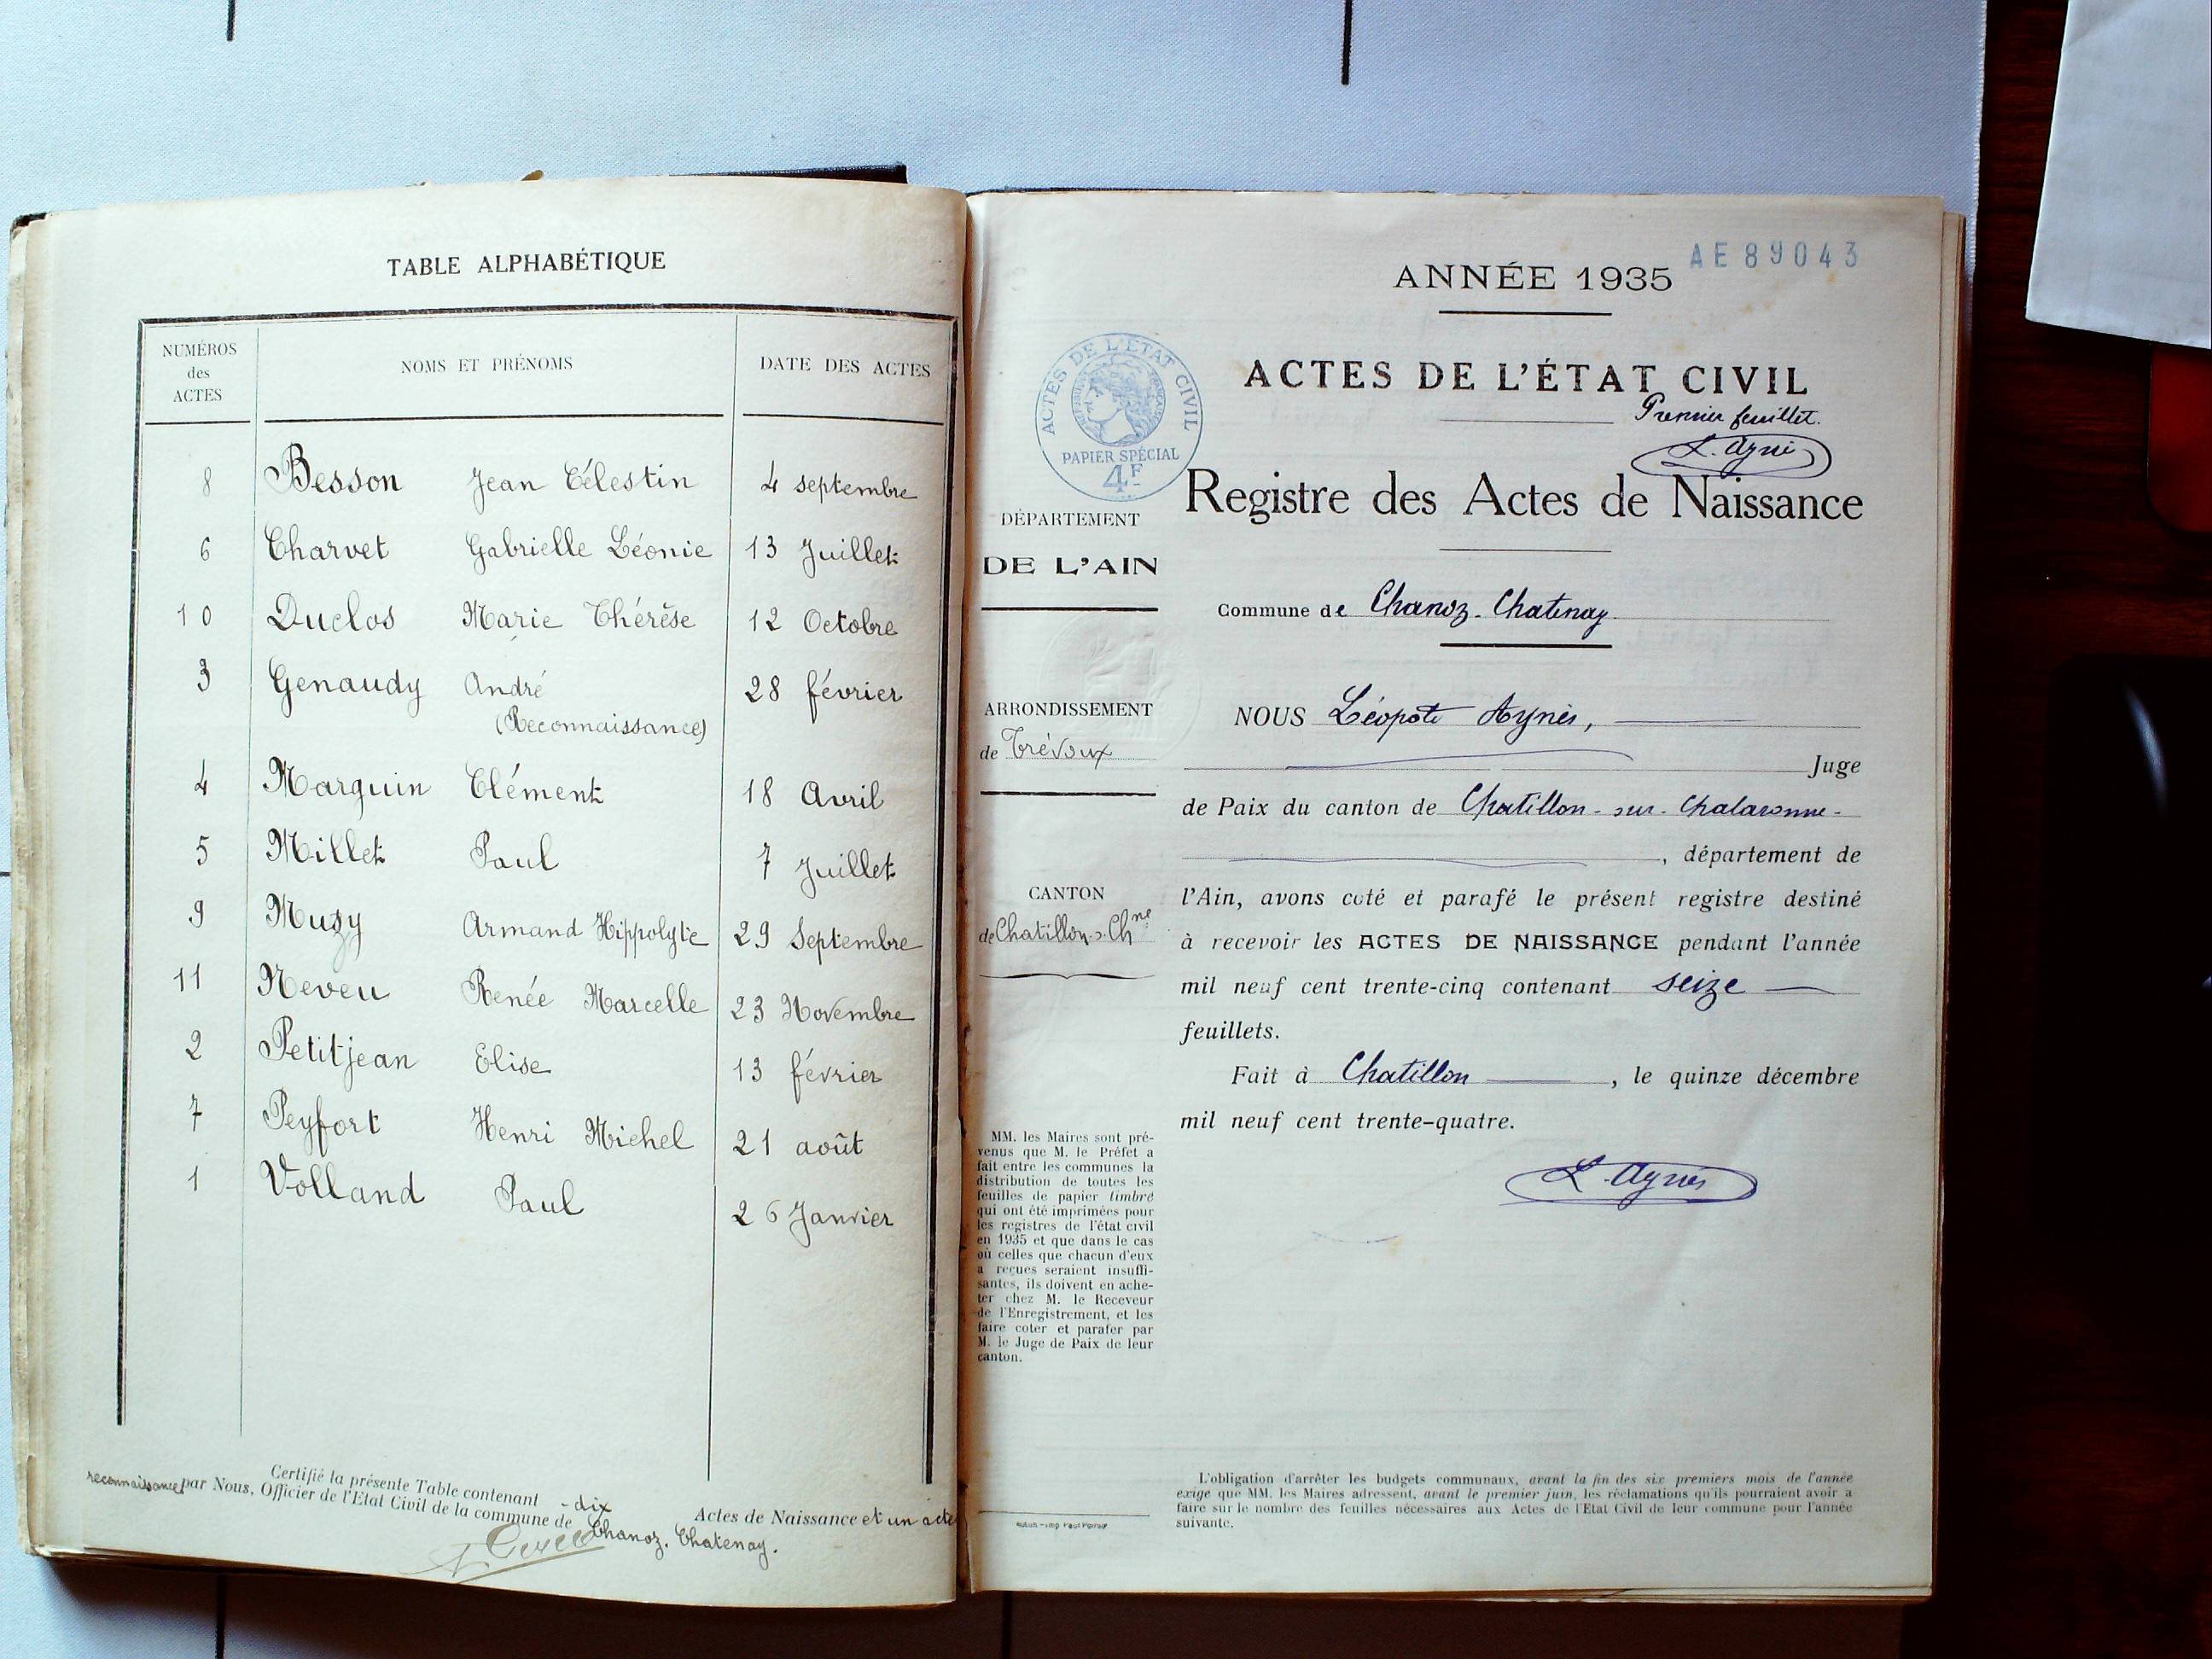 TABLE ALPHABÉTIQUE
NUMÉROS
des
ACTES
NOMS ET PRÉNOMS
DATE DES ACTES
8 Besson Jean Célestin 4 septembre
6 Charvet Gabrielle Léonie 13 Juillet
10 Duclos Marie Thérèse 12 Octobre
3 Genaudy André 28 février
(Reconnaissance)
4 Marguin Clément 18 Avril
5 Millet Paul 7 Juillet
9 Muzy Armand Hippolyte 29 Septembre
11 Neveu Renée Marcelle 23 Novembre
2 Petitjean Elise 13 février
7 Peyfort Henri Michel 21 août
1 Volland Paul 26 Janvier
Certifié la présente Table contenant - dix Actes de Naissance et un acte
reconnaissance par Nous, Officier de l'Etat Civil de la commune de Chanoz. Chatenay.
AE89043
ANNÉE 1935
ACTES DE L'ÉTAT CIVIL
Premier feuillet.
L. Aynès
ACTES DE L'ETAT CIVIL
PAPIER SPÉCIAL
4F
Registre des Actes de Naissance
DÉPARTEMENT
DE L'AIN
Commune de Chanoz-Chatenay
ARRONDISSEMENT
de Trévoux
CANTON
de Chatillon-s-Chne
NOUS Aynès,
Juge
de Paix du canton de Chatillon-sur-Chalaronne-
, département de
l'Ain, avons coté et parafé le présent registre destiné
à recevoir les ACTES DE NAISSANCE pendant l'année
mil neuf cent trente-cinq contenant seize
feuillets.
Fait à Chatillon , le quinze décembre
mil neuf cent trente-quatre.
L. Aynès
MM. les Maires sont pré-
venus que M. le Préfet a
fait entre les communes la
distribution de toutes les
feuilles de papier timbré
qui ont été imprimées pour
les registres de l'état civil
en 1935 et que dans le cas
où celles que chacun d'eux
a reçues seraient insuffi-
santes, ils doivent en ache-
ter chez M. le Receveur
de l'Enregistrement, et les
faire coter et parafer par
M. le Juge de Paix de leur
canton.
L'obligation d'arrêter les budgets communaux, avant la fin des six premiers mois de l'année
exige que MM. les Maires adressent, avant le premier juin, les réclamations qu'ils pourraient avoir a
faire sur le nombre des feuilles nécessaires aux Actes de l'Etat Civil de leur commune pour l'année
suivante.